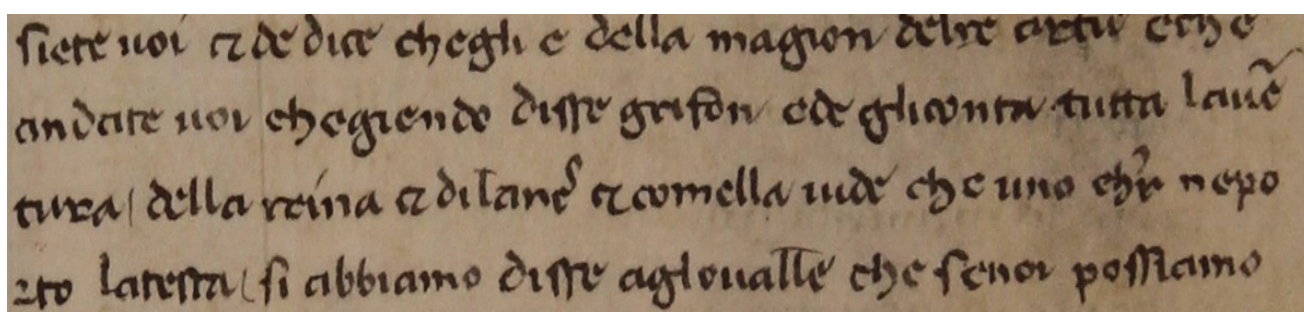 siete uoi ⁊ de dice chegli e della magion delre artu eche
andate uoi chegiendo disse grifon ede gliconta tutta lauē
tura / della reina ⁊ di lanc̛ ⁊ comella uide che uno chr̛ nepo
rto latesta / si abbiamo disse agloualle che senoi possiamo